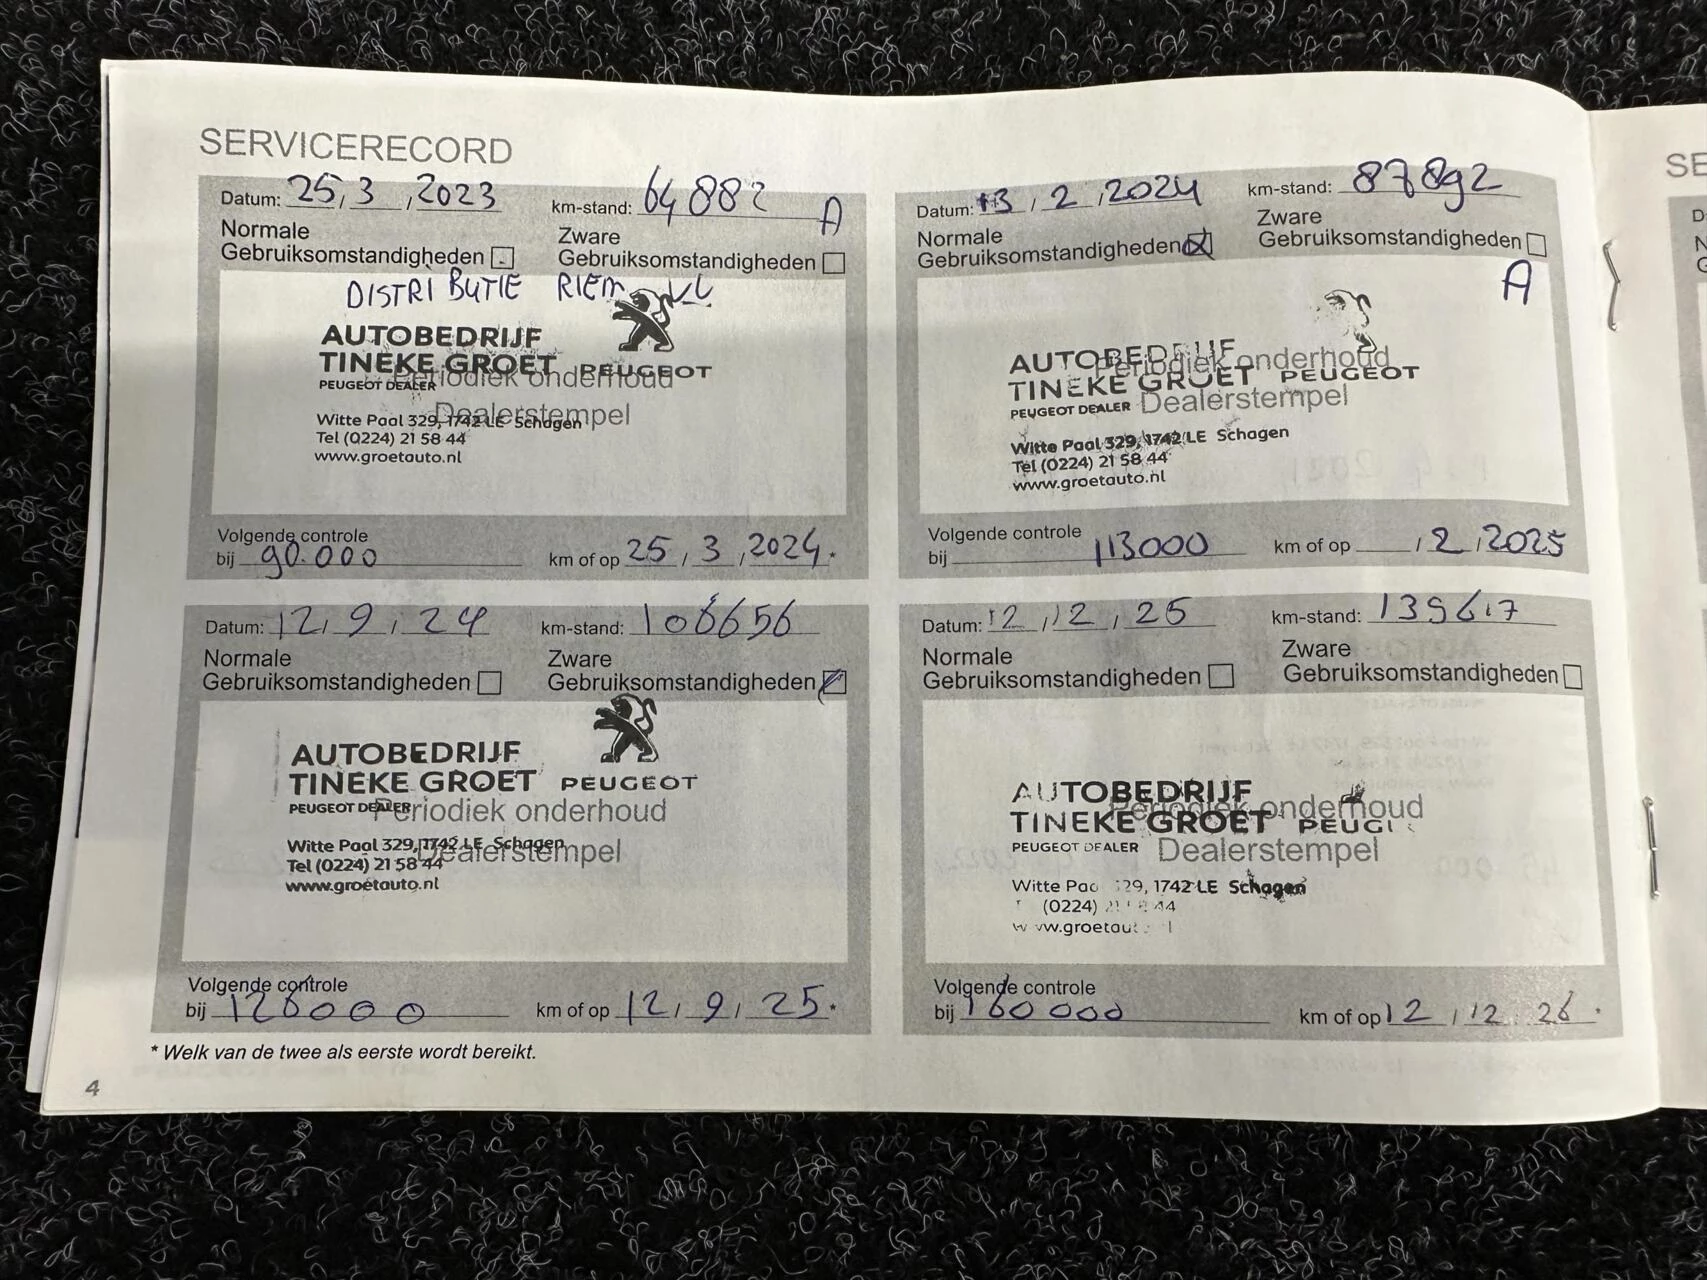 SERVICERECORD
Datum: 25, 3, 2023 km-stand: 64882 A
Normale Gebruiksomstandigheden
Zware Gebruiksomstandigheden
DISTRIBUTIE RIEM
AUTOBEDRIJF
TINEKE GROET PEUGEOT
PEUGEOT DEALER Periodiek onderhoud
Dealerstempel
Witte Paal 329, 1742 LE Schagen
Tel (0224) 21 58 44
www.groetauto.nl
Volgende controle
bij 90.000 km of op 25, 3, 2024 *
Datum: 13, 2, 2024 km-stand: 87892
Normale Gebruiksomstandigheden
Zware Gebruiksomstandigheden
A
AUTOBEDRIJF
Periodiek onderhoud
TINEKE GROET PEUGEOT
PEUGEOT DEALER Dealerstempel
Witte Paal 329, 1742 LE Schagen
Tel (0224) 21 58 44
www.groetauto.nl
Volgende controle
bij 113000 km of op , 2, 2025
Datum: 12, 9, 24 km-stand: 106656
Normale Gebruiksomstandigheden
Zware Gebruiksomstandigheden
AUTOBEDRIJF
TINEKE GROET PEUGEOT
PEUGEOT DEALER Periodiek onderhoud
Witte Paal 329, 1742 LE Schagen
Dealerstempel
Tel (0224) 21 58 44
www.groetauto.nl
Volgende controle
bij 126000 km of op 12, 9, 25 *
Datum: 12, 12, 25 km-stand: 139617
Normale Gebruiksomstandigheden
Zware Gebruiksomstandigheden
AUTOBEDRIJF
Periodiek onderhoud
TINEKE GROET PEUG
PEUGEOT DEALER Dealerstempel
Witte Pa 29, 1742 LE Schagen
(0224) 44
www.groetaut
Volgende controle
bij 160000 km of op 12, 12, 26 *
* Welk van de twee als eerste wordt bereikt.
4
SE